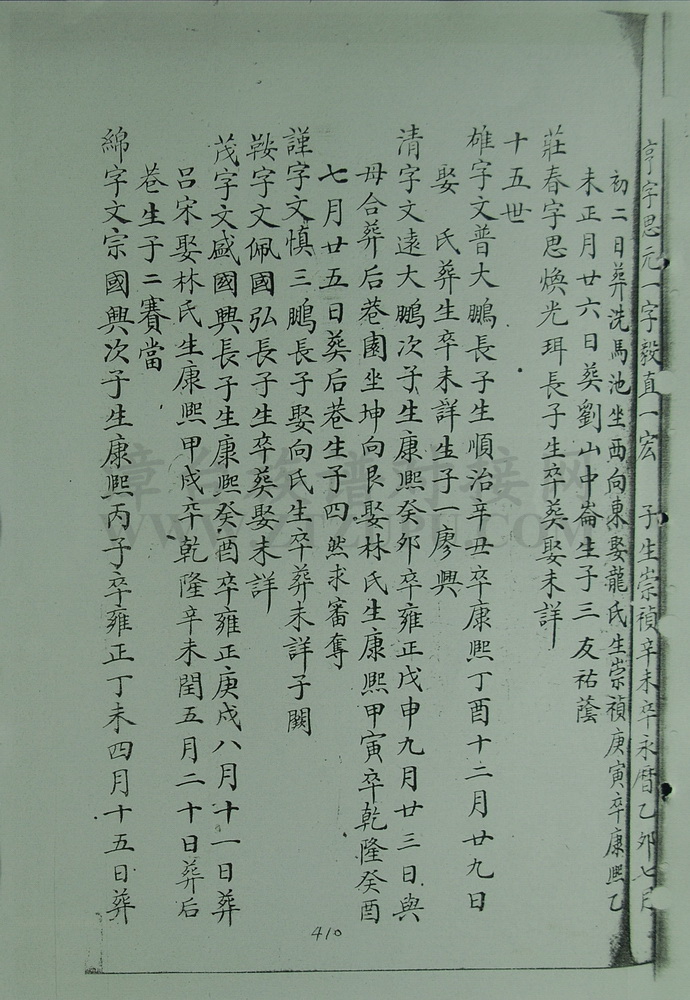 亨字思元一字毅直一宏 子生崇禎辛未卒永曆乙卯七月
初二日葬洗馬池坐西向東娶龍氏生崇禎庚寅卒康熙乙
未正月廿六日葬劉山中崙生子三友祐蔭
莊春字思煥光珥長子生卒葬娶未詳
十五世
雄字文普大鵬長子生順治辛丑卒康熙丁酉十二月廿九日
娶 氏葬生卒未詳生子一廖興
清字文遠大鵬次子生康熙癸卯卒雍正戊申九月廿三日與
母合葬后巷園坐坤向艮娶林氏生康熙甲寅卒乾隆癸酉
七月廿五日葬后巷生子四然求審奪
謹字文慎三鵬長子娶向氏生卒葬未詳子闕
鞍字文佩國弘長子生卒葬娶未詳
茂字文盛國興長子生康熙癸酉卒雍正庚戌八月十一日葬
呂宋娶林氏生康熙甲戌卒乾隆辛未閏五月二十日葬后
巷生子二賽當
綿字文宗國興次子生康熙丙子卒雍正丁未四月十五日葬
410